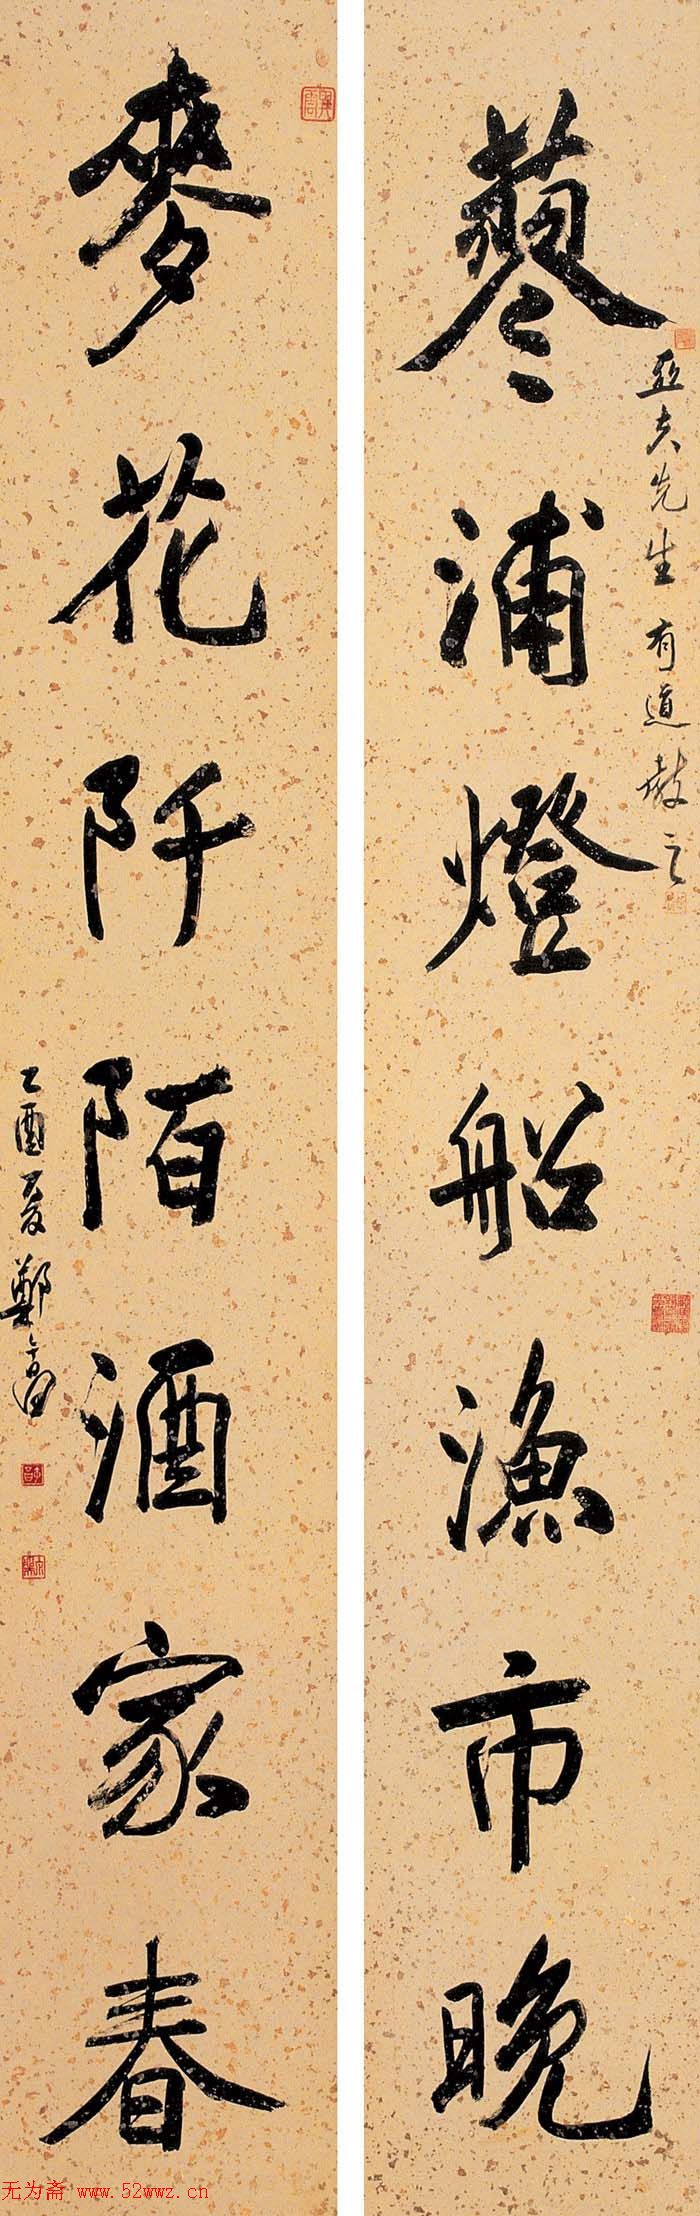 亞夫先生 有道教之
蓼浦燈船漁市晚
麥花阡陌酒家春
乙酉夏鄭午昌
无为斋 www.52wwz.cn